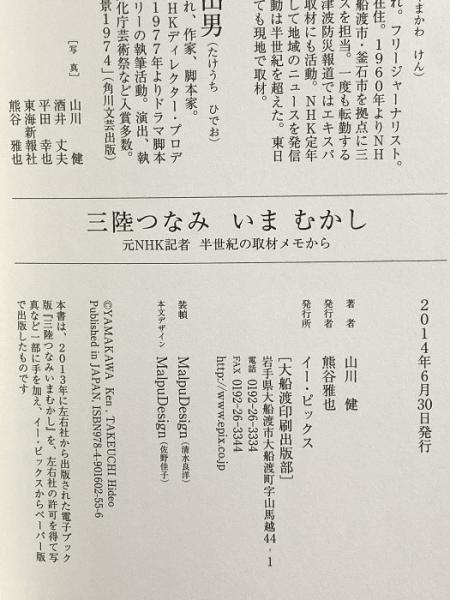 まかわ けん）
れ。フリージャーナリスト。
在住。1960年よりNH
船渡市・釜石市を拠点に三
スを担当。一度も転勤する
津波防災報道ではエキスパ
取材にも活動。NHK定年
して地域のニュースを発信
動は半世紀を超えた。東日
ても現地で取材。
山男（たけうち ひでお）
れ、作家、脚本家。
HKディレクター・プロデ
1977年よりドラマ脚本
リーの執筆活動。演出、執
化庁芸術祭など入賞多数。
景1974』（角川文芸出版）
［写 真］
山川 健
酒井 丈夫
平田 幸也
東海新報社
熊谷 雅也
三陸つなみ いま むかし
元NHK記者 半世紀の取材メモから
2014年6月30日発行
著 者 山川 健
発行者 熊谷雅也
発行所 イー・ピックス
［大船渡印刷出版部］
岩手県大船渡市大船渡町字山馬越44-1
電話 0192-26-3334
FAX 0192-26-3344
http://www.epix.co.jp
装幀 MalpuDesign（清水良洋）
本文デザイン MalpuDesign（佐野佳子）
©YAMAKAWA Ken , TAKEUCHI Hideo
Published in JAPAN. ISBN978-4-901602-55-6
本書は、2013年に左右社から出版された電子ブック
版『三陸つなみ いま むかし』を、左右社の許可を得て写
真など一部に手を加え、イー・ピックスからペーパー版
で出版したものです